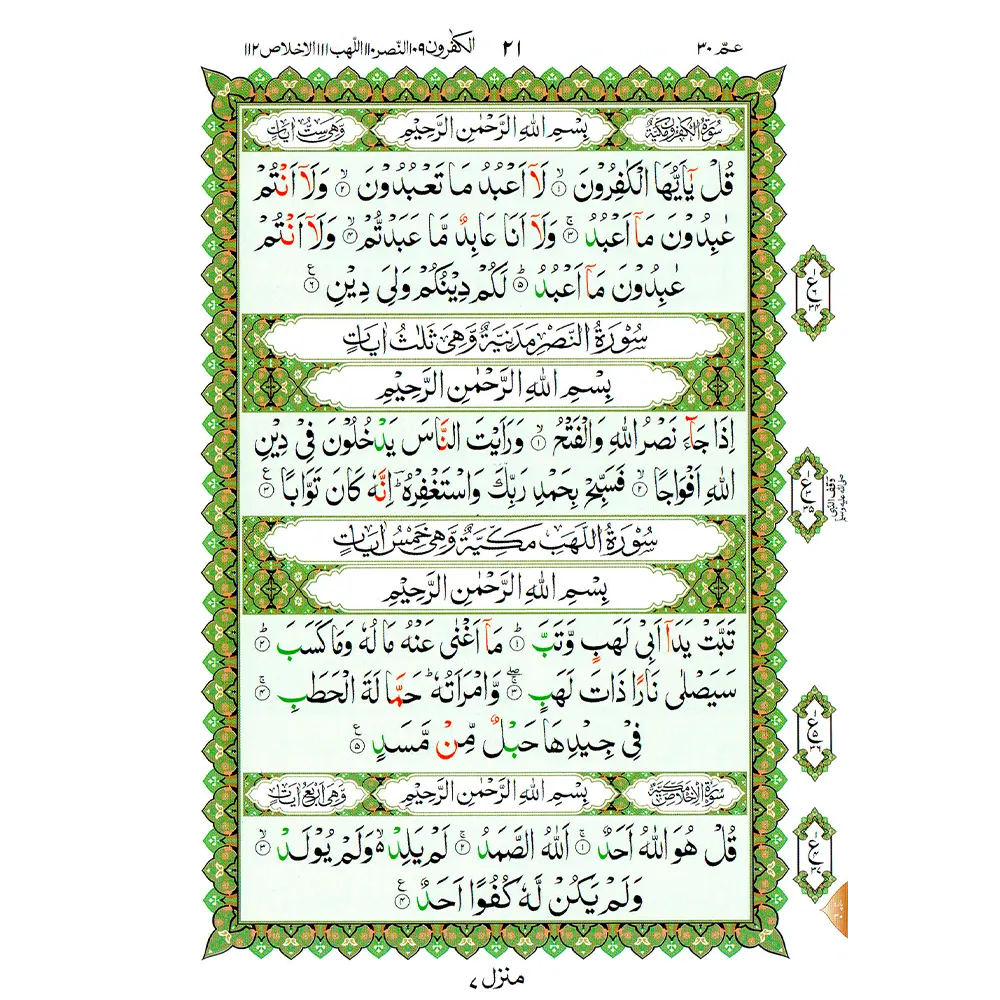 عـمّ ٣٠
٢١
الكٰفرون ١٠٩ النّصر ١١٠ اللّهب ١١١ الاخلاص ١١٢
سُوۡرَةُ الۡكٰفِرُوۡنَ مَكِّيَّةٌ بِسۡمِ اللّٰهِ الرَّحۡمٰنِ الرَّحِيۡمِ وَّهِىَ سِتُّ اٰيَاتٍ
قُلۡ يٰۤاَيُّهَا الۡكٰفِرُوۡنَ ۙ‏﴿۱﴾ لَاۤ اَعۡبُدُ مَا تَعۡبُدُوۡنَ ۙ‏﴿۲﴾ وَلَاۤ اَنۡتُمۡ
عٰبِدُوۡنَ مَاۤ اَعۡبُدُ​ ۚ‏﴿۳﴾ وَلَاۤ اَنَا عَابِدٌ مَّا عَبَدۡتُّمۡۙ‏﴿۴﴾ وَلَاۤ اَنۡتُمۡ
عٰبِدُوۡنَ مَاۤ اَعۡبُدُ ؕ‏﴿۵﴾ لَكُمۡ دِيۡنُكُمۡ وَلِىَ دِيۡنِ ﴿۶﴾ ع
سُوۡرَةُ النَّصۡرِ مَدَنِيَّةٌ وَّهِىَ ثَلٰثُ اٰيَاتٍ
بِسۡمِ اللّٰهِ الرَّحۡمٰنِ الرَّحِيۡمِ
اِذَا جَآءَ نَصۡرُ اللّٰهِ وَالۡفَتۡحُ ۙ‏﴿۱﴾ وَرَاَيۡتَ النَّاسَ يَدۡخُلُوۡنَ فِىۡ دِيۡنِ
اللّٰهِ اَفۡوَاجًا ۙ‏﴿۲﴾ فَسَبِّحۡ بِحَمۡدِ رَبِّكَ وَاسۡتَغۡفِرۡهُ​ ؕ اِنَّهٗ كَانَ تَوَّابًا ﴿۳﴾ ع
سُوۡرَةُ اللَّهَبِ مَكِّيَّةٌ وَّهِىَ خَمۡسُ اٰيَاتٍ
بِسۡمِ اللّٰهِ الرَّحۡمٰنِ الرَّحِيۡمِ
تَبَّتۡ يَدَاۤ اَبِىۡ لَهَبٍ وَّتَبَّ ؕ‏﴿۱﴾ مَاۤ اَغۡنٰى عَنۡهُ مَالُهٗ وَمَا كَسَبَ ؕ‏﴿۲﴾
سَيَصۡلٰى نَارًا ذَاتَ لَهَبٍ ۖۚ‏﴿۳﴾ وَّامۡرَاَ تُهٗ ؕ حَمَّالَةَ الۡحَطَبِ​ ۚ‏﴿۴﴾
فِىۡ جِيۡدِهَا حَبۡلٌ مِّنۡ مَّسَدٍ ﴿۵﴾ ع
سُوۡرَةُ الۡاِخۡلَاصِ مَكِّيَّةٌ بِسۡمِ اللّٰهِ الرَّحۡمٰنِ الرَّحِيۡمِ وَّهِىَ اَرۡبَعُ اٰيَاتٍ
قُلۡ هُوَ اللّٰهُ اَحَدٌ​ ۚ‏﴿۱﴾ اَللّٰهُ الصَّمَدُ​ ۚ‏﴿۲﴾ لَمۡ يَلِدۡ ۙ وَلَمۡ يُوۡلَدۡ ۙ‏﴿۳﴾
وَلَمۡ يَكُنۡ لَّهٗ كُفُوًا اَحَدٌ ﴿۴﴾ ع
منزل ٧